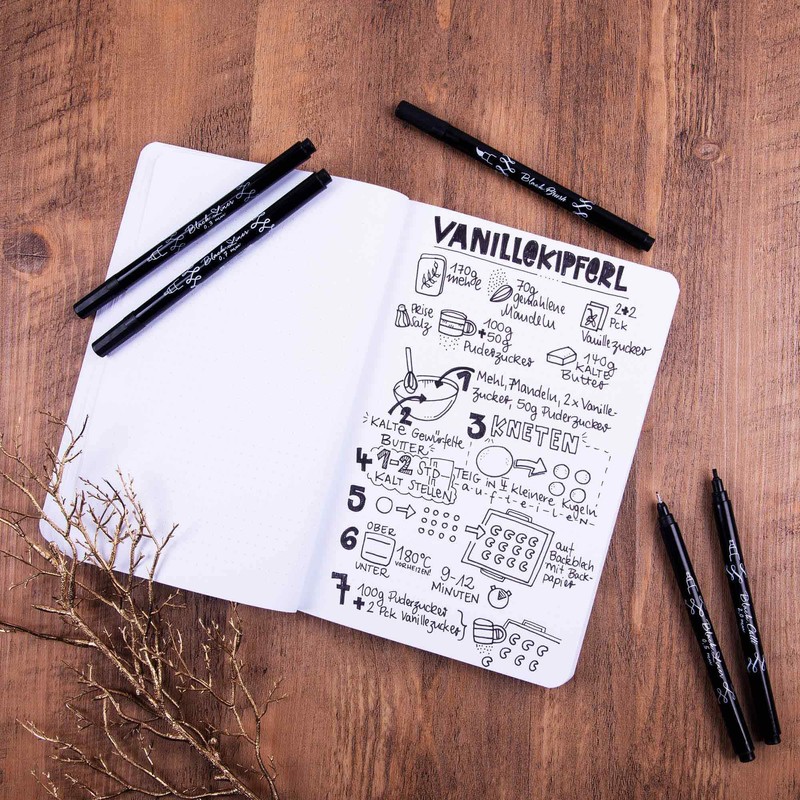 VANILLEKIPFERL
170g
mehle
70g
gemahlene
Mandeln
2+2
Pck
Vanillezucker
Prise
Salz
100g
+50g
Puderzucker
140g
KALTE
Butter
1 Mehl, Mandeln, 2x Vanille-
zucker, 50g Puderzucker
2
KALTE Gewürfelte
BUTTER
3 KNETEN
TEIG IN 4 kleinere Kugeln
aufteilen
4 1-2 STD
KALT STELLEN
5
auf
Backblech
mit Back-
papier
6 OBER
UNTER
180°C
VORHEIZEN!
9-12
MINUTEN
7 100g Puderzucker
+ 2 Pck Vanillezucker
Black Liner
0,3 mm
Black Liner
0,7 mm
Black Brush
Black Liner
0,5 mm
Black Calli